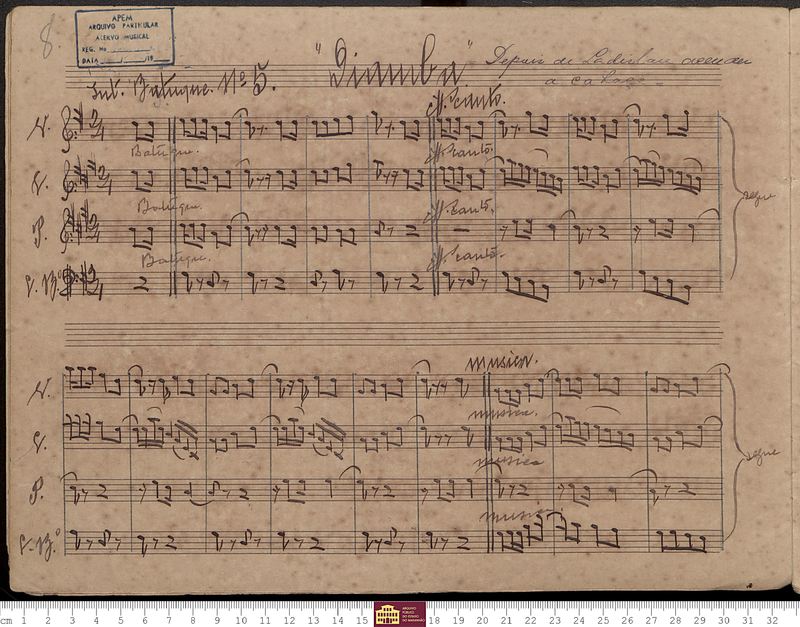 8.
APEM
ARQUIVO PARTICULAR
ACERVO MUSICAL
REG. No
DATA
"Diamba"
Depois de Ladislau acender
a cabaça
Int. Batuque. Nº 5.
ff. canto.
V.
Batuque.
ff. canto.
V.
Batuque.
ff. canto.
P.
segue
Batuque.
ff. canto.
C. Bº
musica.
V.
musica.
V.
musica
segue
P.
musica
C. Bº
cm 1 2 3 4 5 6 7 8 9 10 11 12 13 14 15 18 19 20 21 22 23 24 25 26 27 28 29 30 31 32
ARQUIVO
PÚBLICO
DO ESTADO
DO MARANHÃO